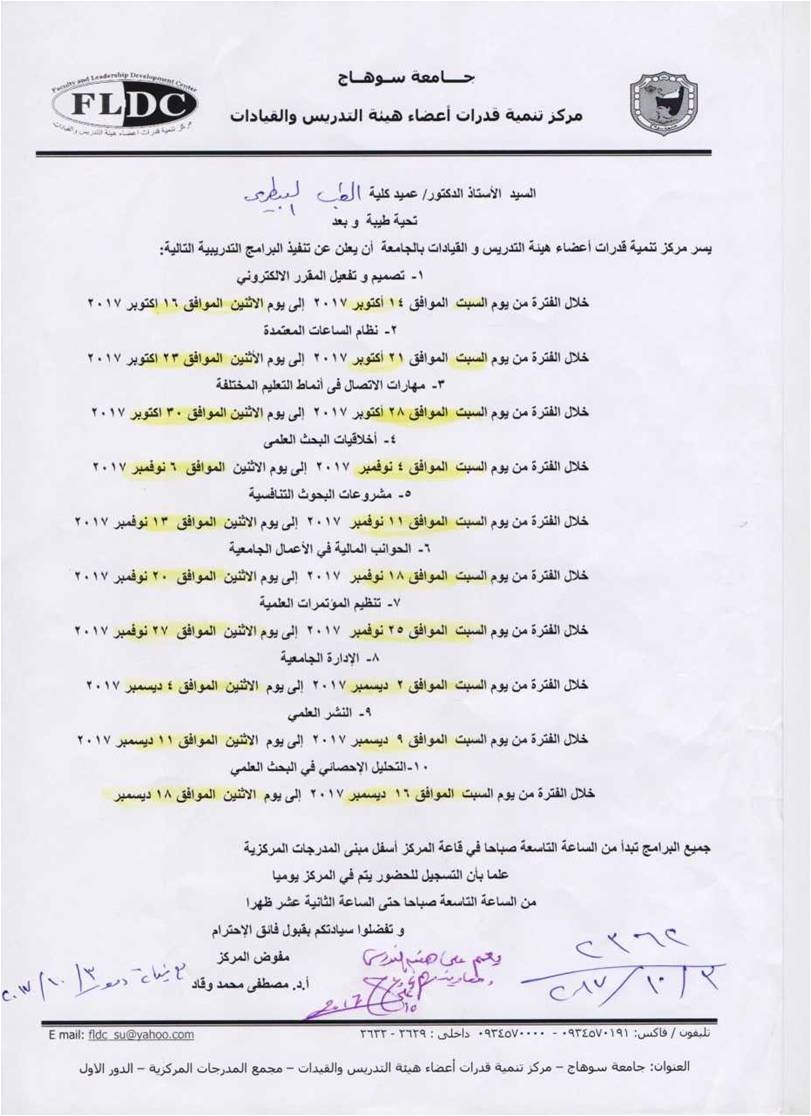 جـــامعة سـوهـاج
Faculty and Leadership Development Center
FLDC
مركز تنمية قدرات أعضاء هيئة التدريس والقيادات
مركز تنمية قدرات أعضاء هيئة التدريس والقيادات
السيد الأستاذ الدكتور/ عميد كلية الطب البيطرى
تحية طيبة و بعد
يسر مركز تنمية قدرات أعضاء هيئة التدريس و القيادات بالجامعة أن يعلن عن تنفيذ البرامج التدريبية التالية:
١- تصميم و تفعيل المقرر الالكتروني
خلال الفترة من يوم السبت الموافق ١٤ أكتوبر ٢٠١٧ إلى يوم الاثنين الموافق ١٦ اكتوبر ٢٠١٧
٢- نظام الساعات المعتمدة
خلال الفترة من يوم السبت الموافق ٢١ أكتوبر ٢٠١٧ إلى يوم الأثنين الموافق ٢٣ اكتوبر ٢٠١٧
٣- مهارات الاتصال فى أنماط التعليم المختلفة
خلال الفترة من يوم السبت الموافق ٢٨ أكتوبر ٢٠١٧ إلى يوم الاثنين الموافق ٣٠ اكتوبر ٢٠١٧
٤- أخلاقيات البحث العلمى
خلال الفترة من يوم السبت الموافق ٤ نوفمبر ٢٠١٧ إلى يوم الاثنين الموافق ٦ نوفمبر ٢٠١٧
٥- مشروعات البحوث التنافسية
خلال الفترة من يوم السبت الموافق ١١ نوفمبر ٢٠١٧ إلى يوم الاثنين الموافق ١٣ نوفمبر ٢٠١٧
٦- الجوانب المالية في الأعمال الجامعية
خلال الفترة من يوم السبت الموافق ١٨ نوفمبر ٢٠١٧ إلى يوم الاثنين الموافق ٢٠ نوفمبر ٢٠١٧
٧- تنظيم المؤتمرات العلمية
خلال الفترة من يوم السبت الموافق ٢٥ نوفمبر ٢٠١٧ إلى يوم الاثنين الموافق ٢٧ نوفمبر ٢٠١٧
٨- الإدارة الجامعية
خلال الفترة من يوم السبت الموافق ٢ ديسمبر ٢٠١٧ إلى يوم الاثنين الموافق ٤ ديسمبر ٢٠١٧
٩- النشر العلمي
خلال الفترة من يوم السبت الموافق ٩ ديسمبر ٢٠١٧ إلى يوم الاثنين الموافق ١١ ديسمبر ٢٠١٧
١٠-التحليل الإحصائي في البحث العلمي
خلال الفترة من يوم السبت الموافق ١٦ ديسمبر ٢٠١٧ إلى يوم الاثنين الموافق ١٨ ديسمبر
جميع البرامج تبدأ من الساعة التاسعة صباحا في قاعة المركز أسفل مبنى المدرجات المركزية
علما بأن التسجيل للحضور يتم في المركز يوميا
من الساعة التاسعة صباحا حتى الساعة الثانية عشر ظهرا
و تفضلوا سيادتكم بقبول فائق الإحترام
مفوض المركز
أ.د. مصطفى محمد وقاد
٢٣٦٢
٢٠١٧/١٠/٣
٢٠١٧/١٠/٣
تليفون / فاكس: ٠٩٣٤٥٧٠١٩١ - ٠٩٣٤٥٧٠٠٠٠ داخلى : ٢٦٢٩ - ٢٦٢٢
E mail: fldc_su@yahoo.com
العنوان: جامعة سوهاج – مركز تنمية قدرات أعضاء هيئة التدريس والقيدات – مجمع المدرجات المركزية – الدور الاول